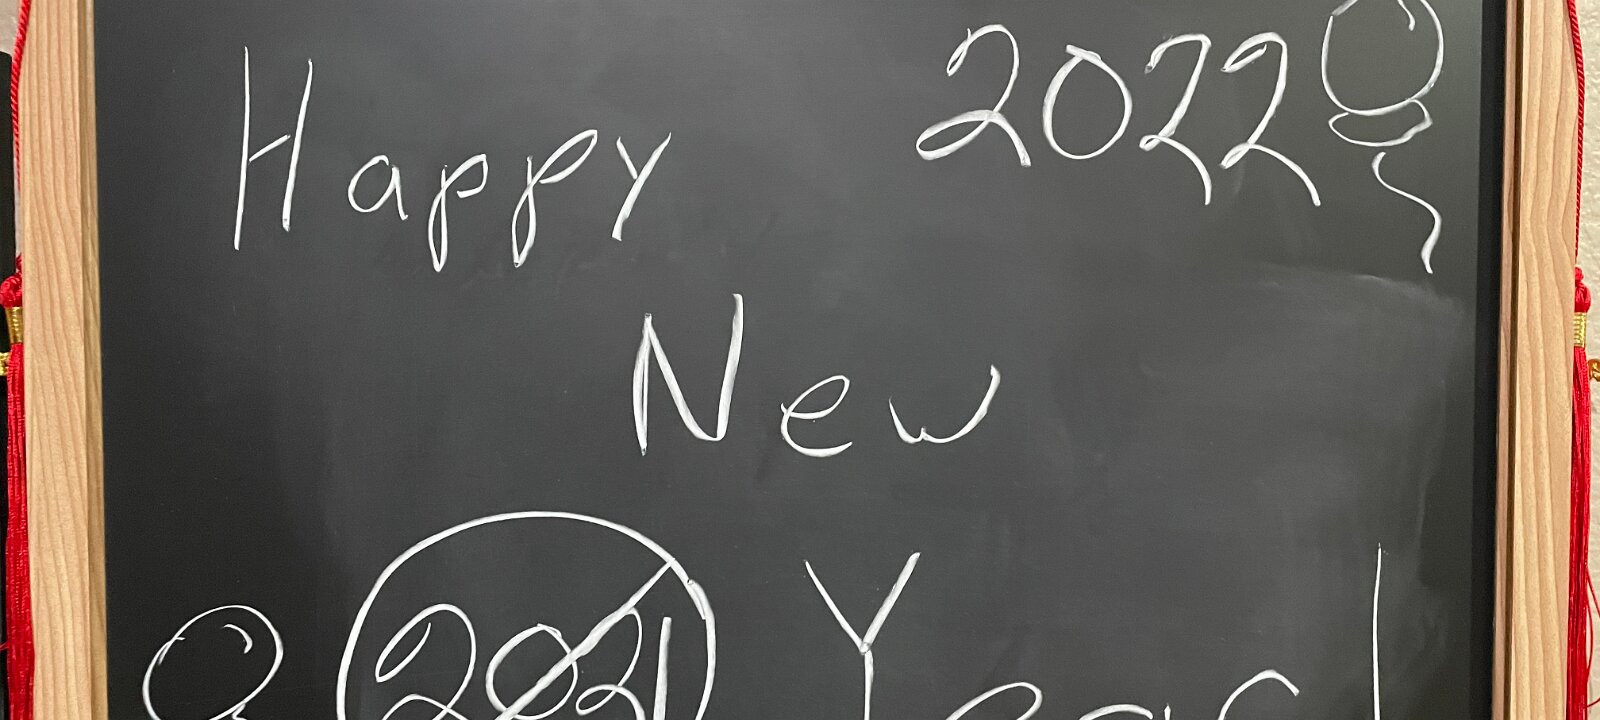 Happy 2022
New
2021 Year!